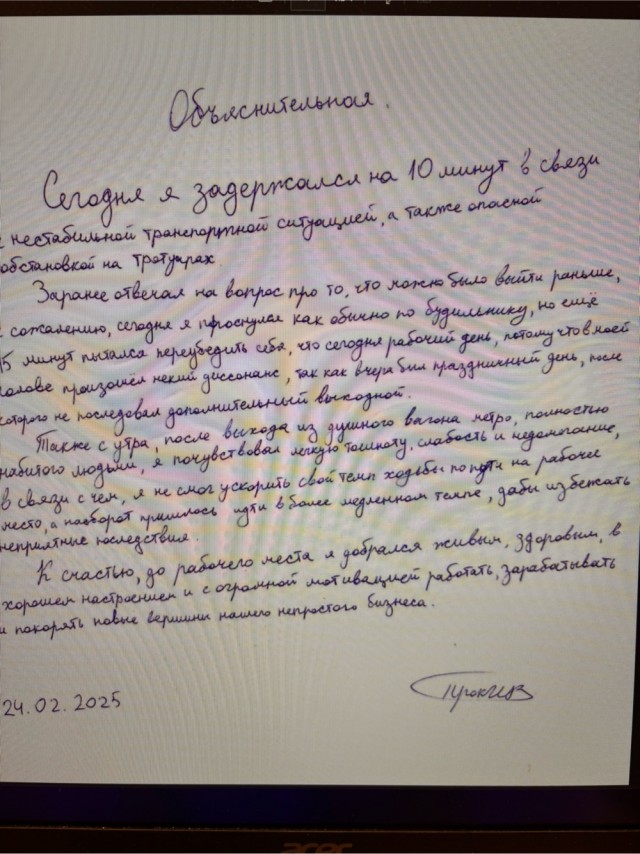 Объяснительная.
Сегодня я задержался на 10 минут в связи
с нестабильной транспортной ситуацией, а также опасной
обстановкой на тротуарах.
Заранее отвечал на вопрос про то, что можно было выйти раньше,
к сожалению, сегодня я проснулся как обычно по будильнику, но ещё
15 минут пытался переубедить себя, что сегодня рабочий день, потому что в моей
голове произошёл некий диссонанс, так как вчера был праздничный день, после
которого не последовал дополнительный выходной.
Также с утра, после выхода из душного вагона метро, полностью
набитого людьми, я почувствовал легкую тошноту, слабость и недомогание,
в связи с чем, я не смог ускорить свой темп ходьбы по пути на рабочее
место, а наоборот пришлось идти в более медленном темпе, дабы избежать
неприятные последствия.
К счастью, до рабочего места я добрался живым, здоровым, в
хорошем настроении и с огромной мотивацией работать, зарабатывать
и покорять новые вершины нашего непростого бизнеса.
24.02.2025
acer